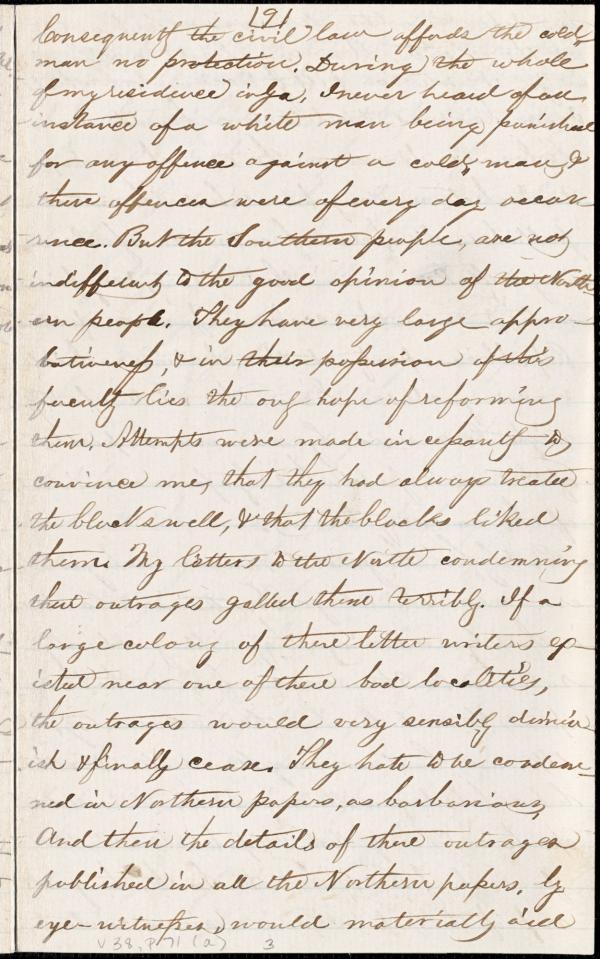 191
Consequently the civil law affords the cold
man no protection. During the whole
of my residence in Ga, I never heard of an
instance of a white man being punished
for any offence against a cold, man, &
these offences were of every day occur
rence. But the Southern people, are not
indifferent to the good opinion of the North
ern people. They have very large appro-
bativeness, & in their possession of this
faculty lies the only hope of reforming
them. Attempts were made incessantly to
convince me, that they had always treated
the blacks well, & that the blacks liked
them. My letters to the North condemning
their outrages galled them terribly. If a
large colony of these letter writers ex-
isted near one of these bad localities,
the outrages would very sensibly dimin-
ish & finally cease. They hate to be condem-
ned in Northern papers, as barbarians,
And then the details of these outrages
published in all the Northern papers, by
eye-witnesses, would materially aid
V38, P71 (a) 3